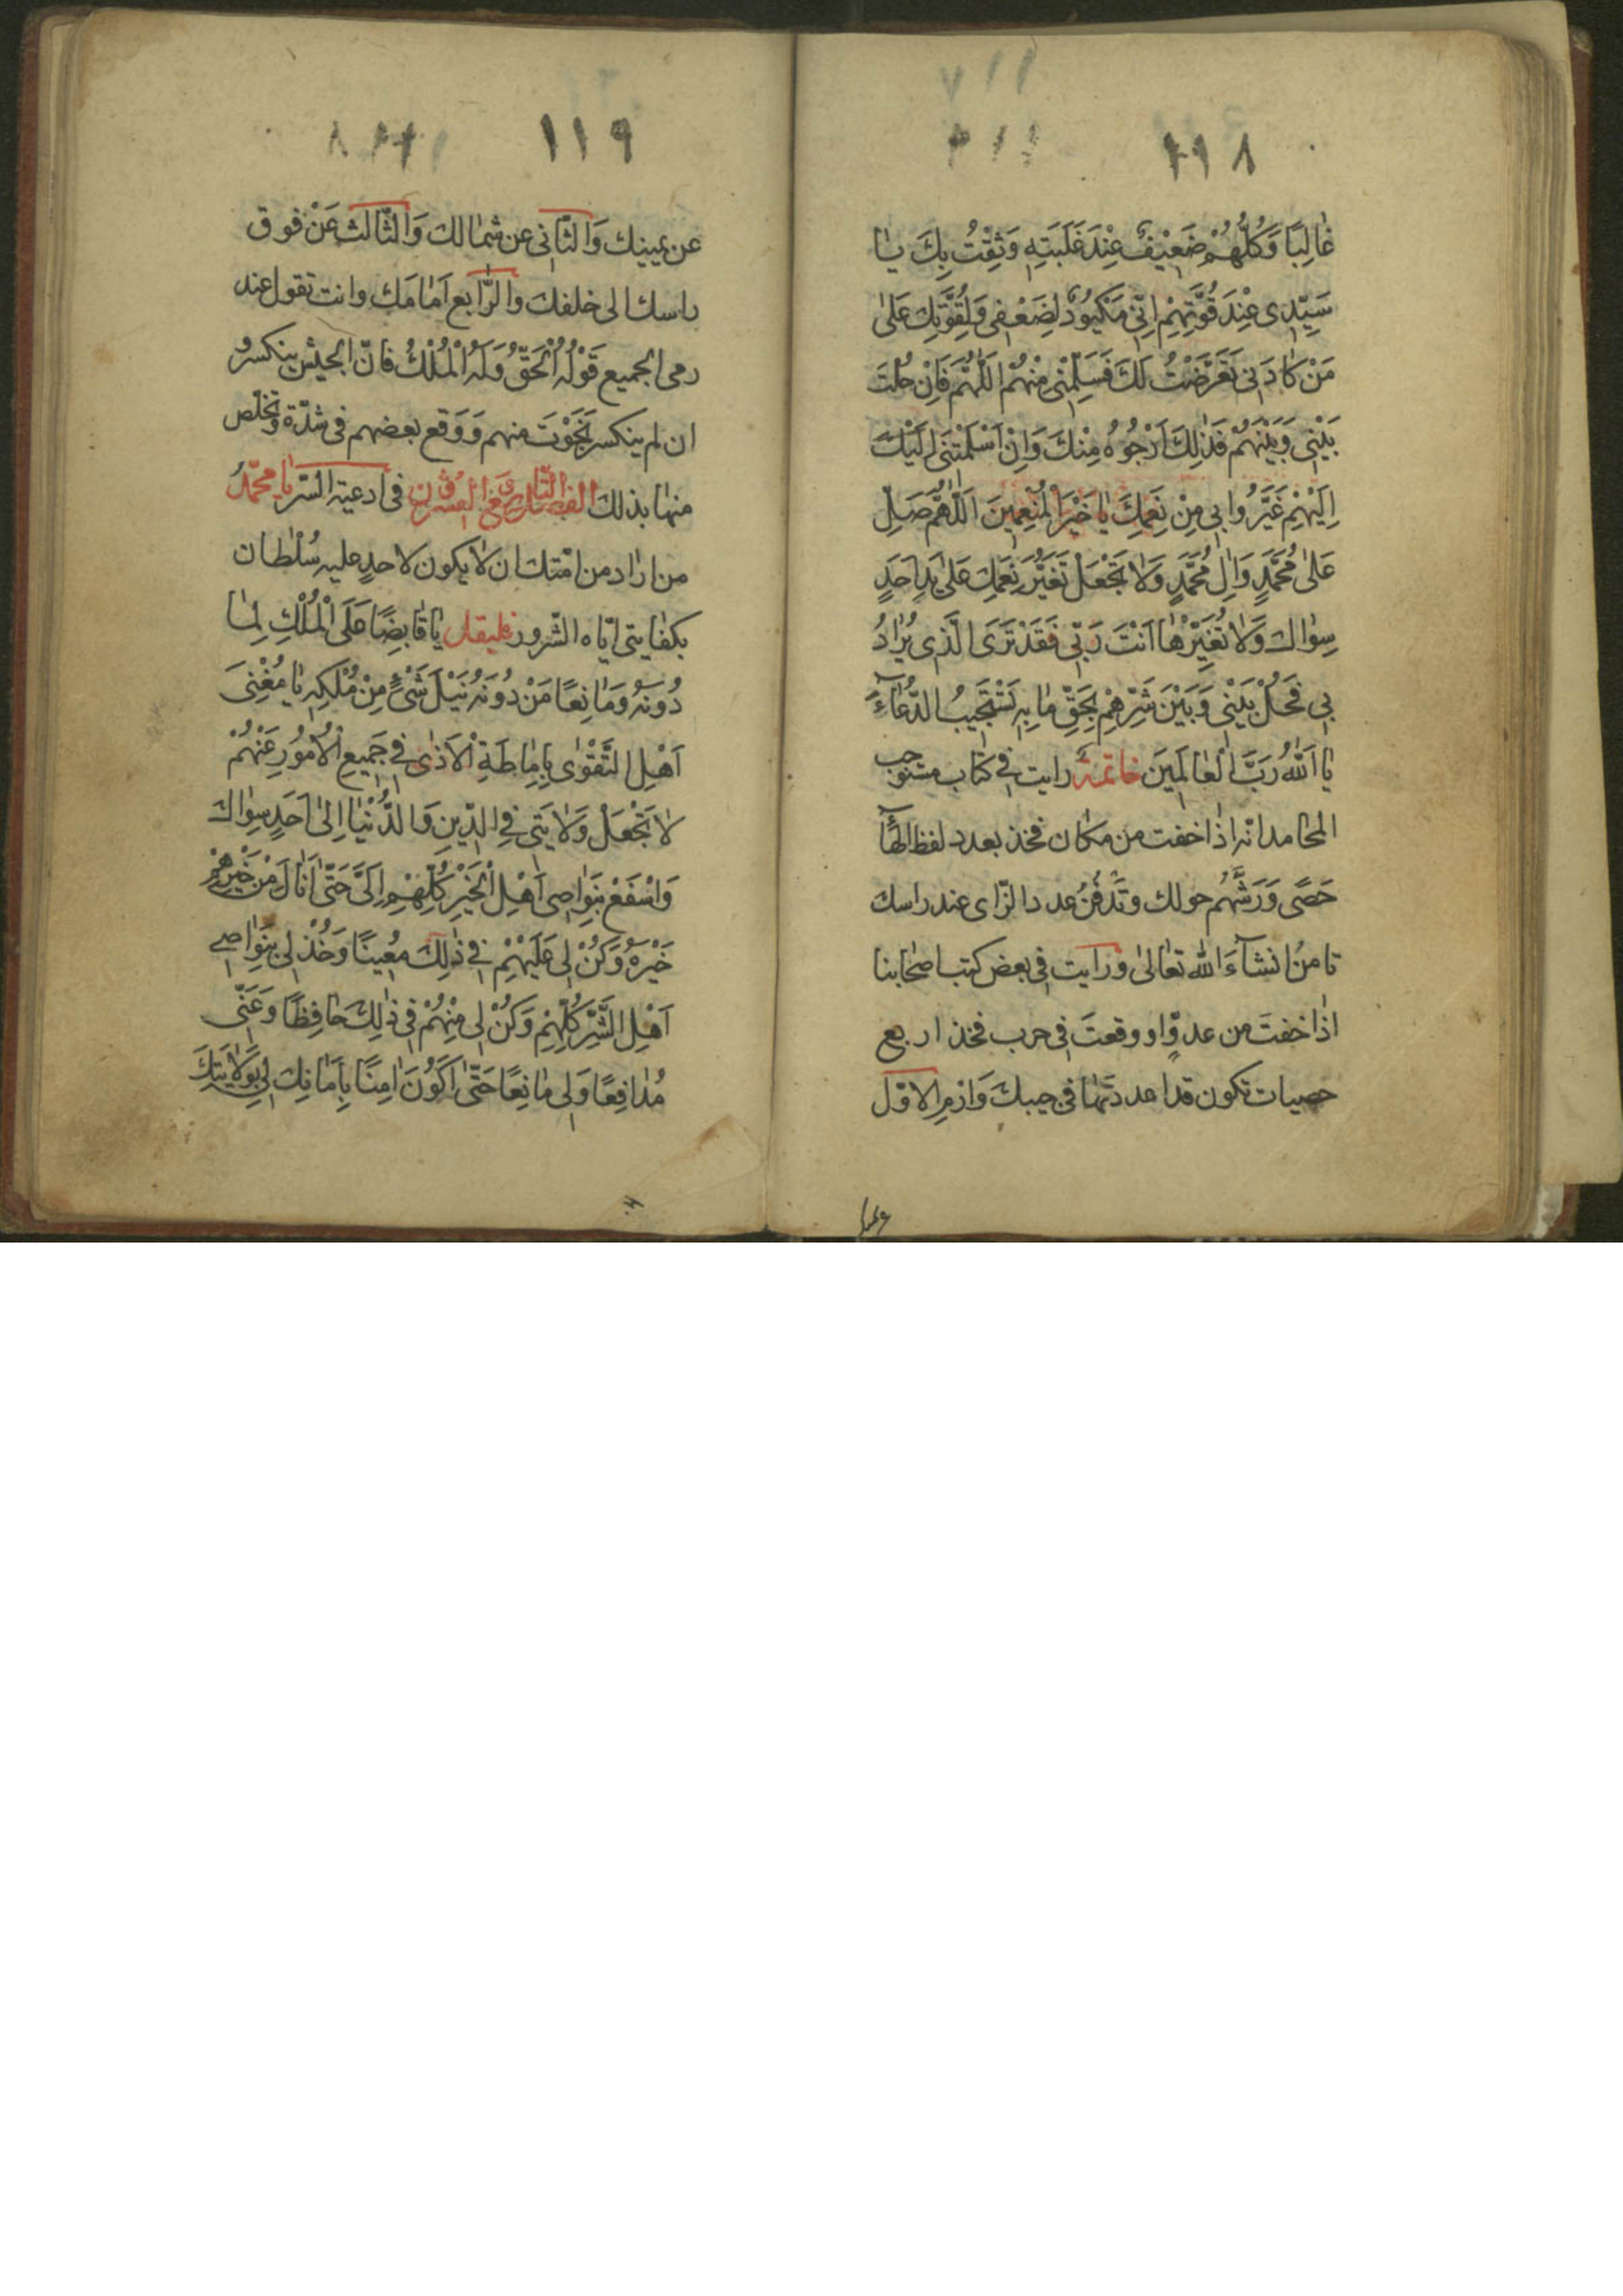 ١١٨
غالِبًا وَكُلُّهُمْ ضَعِيْفٌ عِنْدَ غَلَبَتِهِ وَثِقْتُ بِكَ يا
سَيِّدِى عِنْدَ قُوَّتِهِمْ اِنّى مَكْيُودٌ لِضَعْفِى وَلِقُوَّتِكَ عَلىٰ
مَنْ كادَنى تَعَرَّضْتُ لَكَ فَسَلِّمْنى مِنْهُمْ اَللّٰهُمَّ فَاِنْ حُلْتَ
بَيْنِى وَبَيْنَهُمْ فَذٰلِكَ اَرْجُوهُ مِنْكَ وَاِنْ اَسْلَمْتَنى اِلَيْكَ
اِلَيْهِمْ غَيَّرُوا بى مِنْ نِعَمِكَ يا خَيْرَ الْمُنْعِمِينَ اَللّٰهُمَّ صَلِّ
عَلىٰ مُحَمَّدٍ وَاٰلِ مُحَمَّدٍ وَلا تَجْعَلْ تَغَيُّرَ نِعَمِكَ عَلىٰ يَدِ اَحَدٍ
سِواكَ وَلا تُغَيِّرْها اَنْتَ رَبّى فَقَدْ تَرَى الَّذى يُرادُ
بى فَحُلْ بَيْنِى وَبَيْنَ شَرِّهِمْ بِحَقِّ ما بِهِ تَسْتَجِيبُ الدُّعاءَ
يا اَللّٰهُ رَبَّ الْعالَمِينَ خاتمة رايت فى كتاب مستوجب
المحامد انه اذا خفت من مكان فخذ بعدد لفظ الهًا
حَصًى وَرَشَّهُم حولك وتَدفُنُ عدد الزّاى عند راسك
تامنُ انشآءَ الله تعالىٰ ورايت فى بعض كتب اصحابنا
اذا خفتَ من عدوٍّ او وقعتَ فى حرب فخذ اربع
حصيات تكون قد اعددتَها فى جيبك وَارْمِ الاوّل
١١٩
عن يمينك وَالثّانى عن شمالك وَالثّالث عَنْ فوق
راسك الى خلفك والرّابع اَمامَك وانت تقول عند
رمى الجميع قَوْلُهُ الْحَقُّ وَلَهُ الْمُلْكُ فانّ الجيش ينكسر و
ان لم ينكسر نَجَوْتَ منهم وَوَقع بعضهم فى شدّة وتخلّص
منها بذلك الفصل فى ادعية السّر يا محمّدُ
من اراد من امّتك ان لا يكون لاحدٍ عليه سُلْطان
بكفايتى ايّاه الشّرور فليقل يا قابِضًا عَلَى الْمُلْكِ لِما
دُونَهُ وَمانِعًا مَنْ دُونَهُ نَيْلَ شَىْءٍ مِنْ مُلْكِهِ يا مُغْنِىَ
اَهْلِ التَّقْوٰى بِاِماطَةِ الْاَذٰى فى جَمِيعِ الْاُمُورِ عَنْهُمْ
لا تَجْعَلْ وَلايَتى فِى الدِّينِ وَالدُّنْيا اِلىٰ اَحَدٍ سِواكَ
وَاسْفَعْ بِنَواصِى اَهْلِ الْخَيْرِ كُلِّهِمْ اِلَىَّ حَتّىٰ اَنالَ مِنْ خَيْرِهِمْ
خَيْرَهُ وَكُنْ لى عَلَيْهِمْ فى ذٰلِكَ مُعِينًا وَخُذْ لى بِنَواصِى
اَهْلِ الشَّرِّ كُلِّهِمْ وَكُنْ لى مِنْهُمْ فى ذٰلِكَ حافِظًا وَعَنّى
مُدافِعًا وَلى مانِعًا حَتّىٰ اَكُونَ اٰمِنًا بِاَمانِكَ لى بِوَلايَتِكَ